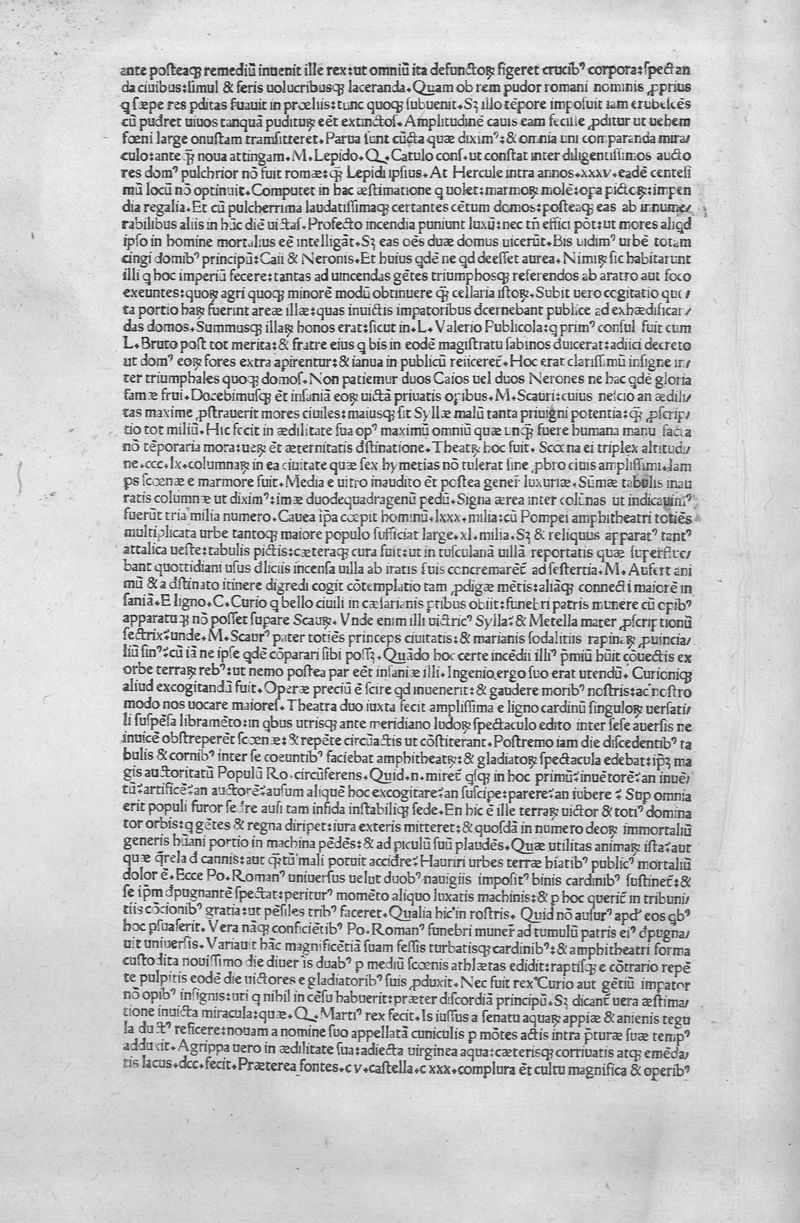 ante poſteaqꝫ remediū invenit ille rex:ut omniū ita defunctoꝝ figeret crucibꝰ corpora:ſpectan
da ciuibus:ſimul & feris uolucribuſqꝫ laceranda. Quam ob rem pudor romani nominis ꝓprius
q ſæpe res pditas ſuauit in prœliis:tunc quoqꝫ ſubuenit. Sꝫ illo tēpore impoſuit iam erubeſcēs
cū pudret uiuos tanquā puditurꝰ eēt extinctoſ. Amplitudinē cauis eam feciſſe ꝓditur ut uehem
fœni large onuſtam tramſitteret. Parua ſunt cūcta quæ diximꝰ:& omnia uni comparanda mira/
culo:ante q̄ꝫ noua attingam. M. Lepido. Q. Catulo conſ. ut conſtat inter diligentiſſimos aucto
res domꝰ pulchrior nō fuit romæ:q̄ꝫ Lepidi ipſius. At Hercule intra annos. xxxv. eadē centeſi
mū locū nō optinuit. Computet in hac æſtimatione q uolet:marmoꝝ molē:opa pictoꝝ:impen
dia regalia. Et cū pulcherrima laudatiſſimaqꝫ certantes cētum domos:poſteaqꝫ eas ab innume/
rabilibus aliis in hāc diē uictaſ. Profecto incendia puniunt luxū:nec tn̄ effici pōt:ut mores aliqd
ipſo in homine mortalius eē intelligāt. Sꝫ eas oēs duæ domus uicerūt. Bis uidimꝰ urbē totam
cingi domibꝰ principū:Caii & Neronis. Et huius qdē ne qd deeſſet aurea. Nimiꝝ ſic habitarunt
illi q hoc imperiū fecere:tantas ad uincendas gētes triumphosqꝫ referendos ab aratro aut foco
exeuntes:quoꝝ agri quoqꝫ minorē modū obtinuere q̄ꝫ cellaria iſtoꝝ. Subit uero cogitatio quo/
ta portio haꝝ fuerint areæ illæ:quas inuictis impatoribus dcernebant publice ad exhædifican/
das domos. Summusqꝫ illaꝝ honos erat:ſicut in. L. Valerio Publicola:q primꝰ conſul fuit cum
L. Bruto poſt tot merita:& fratre eius q bis in eodē magiſtratu ſabinos duicerat:adiici decreto
ut domꝰ eoꝝ fores extra apirentur:& ianua in publicū reiiceretʳ. Hoc erat clariſſimū inſigne in/
ter triumphales quoqꝫ domoſ. Non patiemur duos Caios uel duos Nerones ne hac qdē gloria
famæ frui. Docebimuſqꝫ ēt inſaniā eoꝝ uictā priuatis opibus. M. Scauri:cuius neſcio an ædili/
tas maxime ꝓſtrauerit mores ciuiles:maiusqꝫ ſit Syllæ malū tanta priuigni potentia:q̄ꝫ ꝓſcrip/
tio tot miliū. Hic fecit in ædilitate ſua opꝰ maximū omniū quæ unq̄ꝫ fuere humana manu facta
nō tēporaria mora:ueꝝ ēt æternitatis dſtinatione. Theatꝝ hoc fuit. Scæna ei triplex altitudi/
ne. ccc. lx. columnaꝝ in ea ciuitate quæ ſex hymetias nō tulerat ſine ꝓbro ciuis ampliſſimi. Iam
ps ſcœnæ e marmore fuit. Media e uitro inaudito ēt poſtea generꝭ luxuriæ. Sūmæ tabulis inau
ratis columnæ ut diximꝰ:imæ duodequadragenū pedū. Signa ærea inter colūnas ut indicauimꝰ
fuerūt tria milia numero. Cauea ip̄a cœpit hominū. lxxx. milia:cū Pompei amphitheatri totiēs
multiplicata urbe tantoqꝫ maiore populo ſufficiat large. xl. milia. Sꝫ & reliquus apparatꝰ tantꝰ
attalica ueſte:tabulis pictis:cæteraqꝫ cura fuit:ut in tuſculanā uillā reportatis quæ ſuperfluc/
bant quottidiani uſus dliciis incenſa uilla ab iratis ſuis concremaretʳ ad ſeſtertia. M. Aufert ani
mū & a dſtinato itinere digredi cogit cōtemplatio tam ꝓdigæ mētis:aliāqꝫ connecti maiorē in
ſaniā. E ligno. C. Curio q bello ciuili in cæſarianis ptibus obiit:funebri patris munere cū opibꝰ
apparatuqꝫ nō poſſet ſupare Scauꝝ. Vnde enim illi uictricꝰ Sylla:& Metella mater ꝓſcriptionū
ſectrix:unde. M. Scaurꝰ pater totiēs princeps ciuitatis:& marianis ſodalitiis rapinaꝝ ꝓuincia/
liū ſinꝰ:cū iā ne ipſe qdē cōparari ſibi poſſꝫ. Quādo hoc certe incēdii illiꝰ p̄miū hūit cōuectis ex
orbe terraꝝ rebꝰ:ut nemo poſtea par eēt inſaniæ illi. Ingenio ergo ſuo erat utendū. Curioniqꝫ
aliud excogitandā fuit. Operæ preciū ē ſcire qd inuenerit:& gaudere moribꝰ noſtris:ac noſtro
modo nos uocare maioreſ. Theatra duo iuxta fecit ampliſſima e ligno cardinū ſinguloꝝ uerſati/
li ſuſpēſa libramēto:in qbus utriſqꝫ ante meridiano ludoꝝ ſpectaculo edito inter ſeſe auerſis ne
inuicē obſtreperēt ſcœnæ:& repēte circūactis ut cōſtiterant. Poſtremo iam die diſcedentibꝰ ta
bulis & cornibꝰ inter ſe coeuntibꝰ faciebat amphitheatꝝ:& gladiatoꝝ ſpectacula edebat:ip̄ꝫ ma
gis auctoritatū Populū Ro. circūferens. Quid. n. miretʳ qſqꝫ in hoc primū:inuētorē:an inuē/
tū:artificē:an auctorē:auſum aliquē hoc excogitare:an ſuſcipe:parere:an iubere? Sup omnia
erit populi furor ſedere auſi tam infida inſtabiliqꝫ ſede. En hic ē ille terraꝝ uictor & totiꝰ domina
tor orbis:q gētes & regna diripet:iura exteris mitteret:& quoſdā in numero deoꝝ immortaliū
generis hūani portio in machina pēdēs:& ad piculū ſuū plaudēs. Quæ utilitas animaꝝ iſta:aut
quæ q̄rela d cannis:aut q̄tūꝰ mali potuit accidre? Hauriri urbes terræ hiatibꝰ publicꝰ mortaliū
dolor ē. Ecce Po. Romanꝰ uniuerſus uelut duobꝰ nauigiis impoſitꝰ binis cardinibꝰ ſuſtinetʳ:&
ſe ip̄m dpugnantē ſpectat:periturꝰ momēto aliquo luxatis machinis:& p hoc queritʳ in tribuni/
tiis cōcionibꝰ gratia:ut pēſiles tribꝰ faceret. Qualia hic in roſtris. Quid nō auſurꝰ apd' eos qbꝰ
hoc pſuaſerit. Vera nāqꝫ conficiētibꝰ Po. Romanꝰ funebri munerꝭ ad tumulū patris eiꝰ dpugna/
uit uniuerſis. Variauit hāc magnificētiā ſuam feſſis turbatisqꝫ cardinibꝰ:& amphitheatri forma
cuſtodita nouiſſimo die diuerſis duabꝰ p mediū ſcœnis athlætas edidit:raptiſqꝫ e cōtrario repē
te pulpitis eodē die uictores e gladiatoribꝰ ſuis ꝓduxit. Nec fuit rex Curio aut gētiū impator
nō opibꝰ inſignis:uti q nihil in cēſu habuerit:præter diſcordiā principū. Sꝫ dicantʳ uera æſtima/
tione inuicta miracula:quæ. Q. Martiꝰ rex fecit. Is iuſſus a ſenatu aquaꝝ appiæ & anienis tegu
la ductꝰ reficere:nouam a nomine ſuo appellatā cuniculis p mōtes actis intra p̄turæ ſuæ tempꝰ
adduxit. Agrippa uero in ædilitate ſua:adiecta uirginea aqua:cæterisqꝫ corriuatis atqꝫ emēda/
tis lacus. dcc. fecit. Præterea fontes. c v. caſtella. c xxx. complura ēt cultu magnifica & operibꝰ